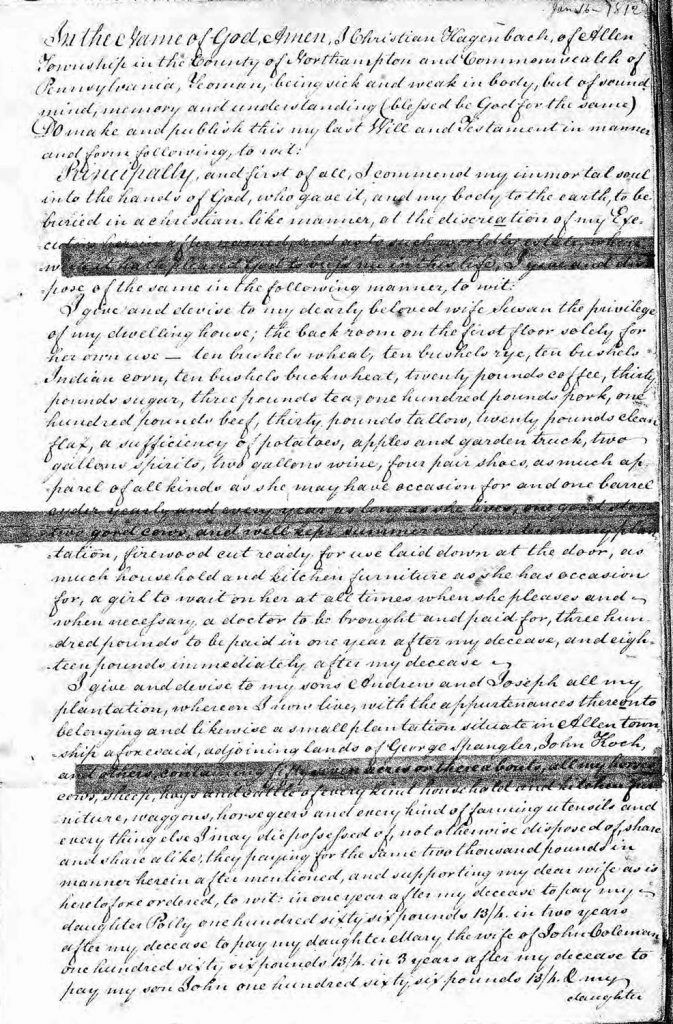 Jan 16 - 1812
In the Name of God, Amen, I Christian Hagenbach, of Allen
Township in the County of Northampton and Commonwealth of
Pennsylvania, Yeoman, being sick and weak in body, but of sound
mind, memory and understanding (blessed be God for the same)
DO make and publish this my last Will and Testament in manner
and form following, to wit:
Principally, and first of all, I commend my immortal soul
into the hands of God, who gave it, and my body to the earth, to be
buried in a christian like manner, at the discreation of my Exe-
cutors herein after named, and as to such worldly estate, where
with it hath pleased God to bless me in this life, I give and dis-
pose of the same in the following manner, to wit:
I give and devise to my dearly beloved wife Susan the privilege
of my dwelling house; the back room on the first floor solely for
her own use — ten bushels wheat, ten bushels rye, ten bushels
Indian corn, ten bushels buckwheat, twenty pounds coffee, thirty
pounds sugar, three pounds tea, one hundred pounds pork, one
hundred pounds beef, thirty pounds tallow, twenty pounds clean
flax, a sufficiency of potatoes, apples and garden truck, two
gallons spirits, two gallons wine, four pair shoes, as much ap-
parel of all kinds as she may have occasion for and one barrel
cider yearly and every year as long as she lives, one good
two good cows, and well kept summer and winter on my plan-
tation, firewood cut ready for use laid down at the door, as
much household and kitchen furniture as she has occasion
for, a girl to wait on her at all times when she pleases and
when necessary a doctor to be brought and paid for, three hun-
dred pounds to be paid in one year after my decease, and eigh-
teen pounds immediately after my decease
I give and devise to my sons Andrew and Joseph all my
plantation, whereon I now live, with the appurtenances thereonto
belonging and likewise a small plantation situate in Allen town
ship aforesaid, adjoining lands of George Spangler, John Koch,
and others, containing fifty seven acres or thereabouts, all my horses
cows, sheep, hogs and cattle of every kind household and kitchen fur
niture, waggons, horsegeers and every kind of farming utensils and
everything else I may die possessed of, not otherwise disposed of, share
and share alike; they paying for the same two thousand pounds in
manner herein after mentioned, and supporting my dear wife as is
heretofore ordered, to wit: in one year after my decease to pay my
daughter Polly one hundred sixty six pounds 13/4. in two years
after my decease to pay my daughter Mary the wife of John Coleman
one hundred sixty six pounds 13/4. in 3 years after my decease to
pay my son John one hundred sixty six pounds 13/4. & my
daughter